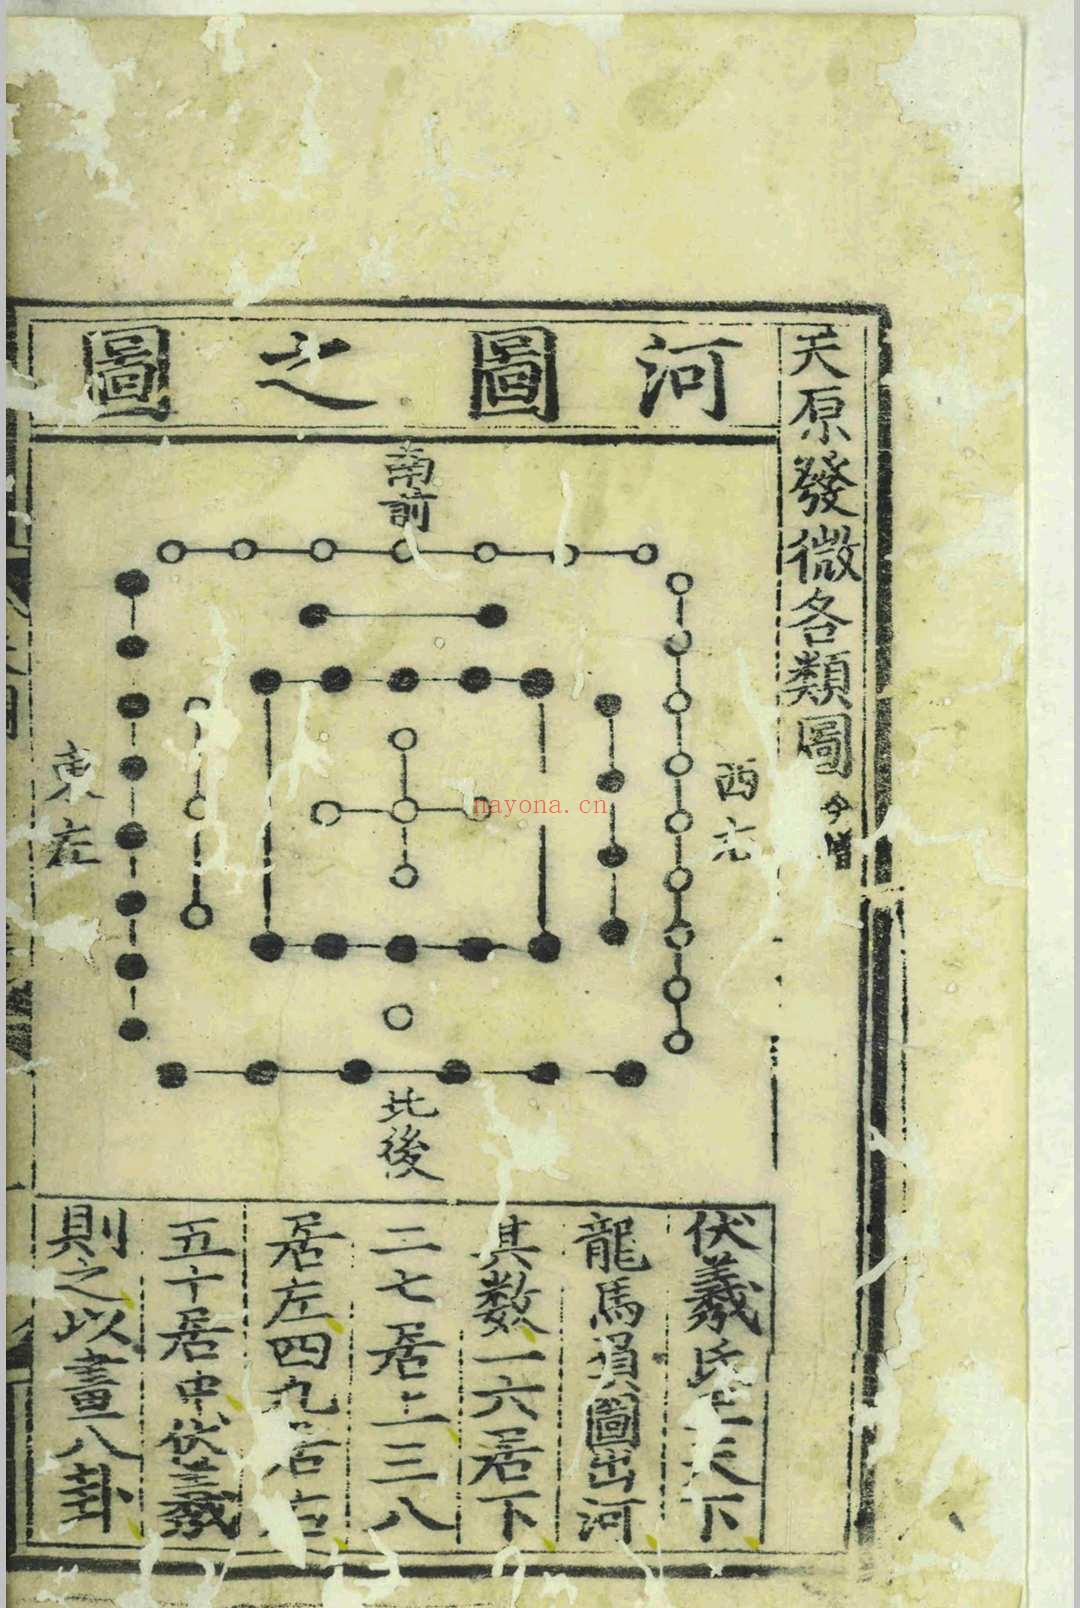 天原發微各類圖今增
河圖之圖
南前
東左
西右
北後
伏羲氏王天下
龍馬負圖出河
其數一六居下
二七居上三八
居左四九居右
五十居中伏羲
則之以畫八卦
nayona.cn